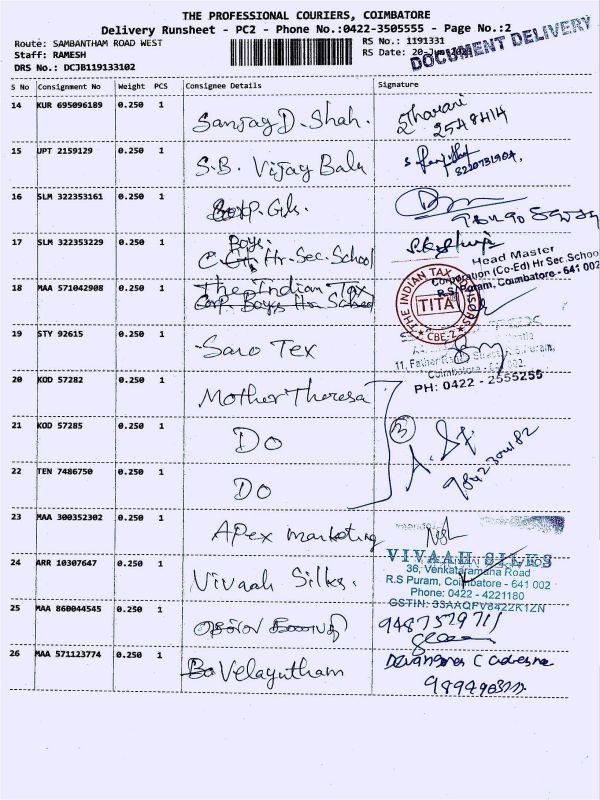 THE PROFESSIONAL COURIERS, COIMBATORE
Delivery Runsheet - PC2 - Phone No.:0422-3505555 - Page No.:2
Route: SAMBANTHAM ROAD WEST
RS No.: 1191331
Staff: RAMESH
RS Date: 20-
DOCUMENT DELIVERY
DRS No.: DCJB119133102
S No Consignment No Weight PCS Consignee Details Signature
14 KUR 695096189 0.250 1 Sanjay D. Shah.
2548414
15 UPT 2159129 0.250 1 S.B. Vijay Balu
16 SLM 322353161 0.250 1
17 SLM 322353229 0.250 1 Boys. Hr. Sec. School
Head Master
Corporation (Co-Ed) Hr Sec. School
R.S. Puram, Coimbatore - 641 002
18 MAA 571042908 0.250 1 The Indian Tax
Corp. Boys Hr School
THE INDIAN TAX
TITA
CBE-2
19 STY 92615 0.250 1 Saro Tex
PH: 0422 - 2555255
20 KOD 57282 0.250 1 Mother Theresa
21 KOD 57285 0.250 1 Do
3
22 TEN 7486750 0.250 1 Do
23 MAA 300352302 0.250 1 Apex marketing
24 ARR 10307647 0.250 1 Vivaah Silks.
VIVAAH SILKS
36, Venkataramana Road
R.S Puram, Coimbatore - 641 002
Phone: 0422 - 4221180
GSTIN: 33AAQFV8422K1ZN
25 MAA 860044545 0.250 1
26 MAA 571123774 0.250 1 Velayutham